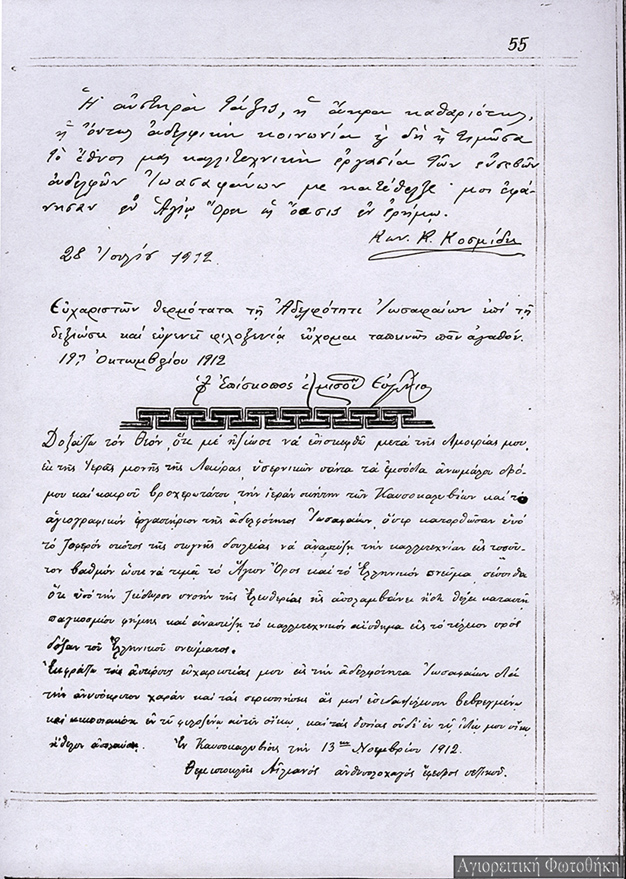 55
Ἡ αὐστηρὰ τάξις, ἡ ἄκρα καθαριότης,
ἡ ὄντως ἀδελφικὴ κοινωνία ἡ δὴ ἡ τιμῶσα
τὸ ἔθνος μας καλλιτεχνικὴ ἐργασία τῶν εὐσεβῶν
ἀδελφῶν Ἰωασαφαίων με κατέθελξε· μοι ἐφά-
νησαν ἐν Ἁγίῳ Ὄρει ὡς ὄασις ἐν ἐρήμῳ.
Κων. Κ. Κοσμίδης
28 Ἰουλίου 1912
Εὐχαριστῶν θερμότατα τῇ Ἀδελφότητι Ἰωσαφαίων ἐπὶ τῇ
δεξιώσει καὶ εὐγενεῖ φιλοξενίᾳ εὔχομαι ταπεινῶς πᾶν ἀγαθόν.
19ῃ Ὀκτωμβρίου 1912
Ἐπίσκοπος Εὐγένιος
Δοξάζω τὸν Θεόν, ὅτι μὲ ἠξίωσε νὰ ἐπισκεφθῶ μετὰ τῆς διμοιρίας μου,
ἐκ τῆς Ἱερᾶς μονῆς τῆς Λαύρας ὑπερνικῶν πάντα τὰ ἐμπόδια ἀνωμάλου δρό-
μου καὶ καιροῦ βροχερωτάτου, τὴν ἱερὰν σκήτην τῶν Καυσοκαλυβίων καὶ τὸ
ἁγιογραφικὸν ἐργαστήριον τῆς ἀδελφότητος Ἰωσαφαίων, ὅπερ κατόρθωσαν ὑπὸ
τὸ ζοφερὸν σκότος τῆς στυγνῆς δουλείας νὰ ἀναπτύξῃ τὴν καλλιτεχνίαν εἰς τοσοῦ-
τον βαθμὸν ὥστε νὰ τιμᾷ τὸ Ἅγιον Ὄρος καὶ τὸ Ἑλληνικὸν πνεῦμα πέποιθα
ὅτι ὑπὸ τὴν ζείδωρον πνοὴν τῆς Ἐλευθερίας ἧς ἀπολαμβάνει ἤδη θέλει καταστῆ
παγκοσμίου φήμης καὶ ἀναπτύξῃ τὸ καλλιτεχνικὸν αἴσθημα εἰς τὸ τέλειον πρὸς
δόξαν τοῦ Ἑλληνικοῦ πνεύματος.
Ἐκφράζω τὰς ἀπείρους εὐχαριστίας μου εἰς τὴν ἀδελφότητα Ἰωσαφαίων διὰ
τὴν ἀνυπόκριτον χαρὰν καὶ τὰς περιποιήσεις ἃς μοὶ ἐπεδαψίλευσαν βεβρεγμένῳ
καὶ ἐν τῷ φιλοξένῳ αὐτῶν οἴκῳ, καὶ τὰς ὁποίας οὐδὲ ἐν τῷ ἰδίῳ μου οἴκῳ
ἤθελον ἀπολαύσῃ. Ἐν Καυσοκαλυβίοις τὴν 13ην Νοεμβρίου 1912.
Θεμιστοκλῆς ἀνθυπολοχαγὸς ἔφεδρος πεζικοῦ.
Αγιορειτική Φωτοθήκη